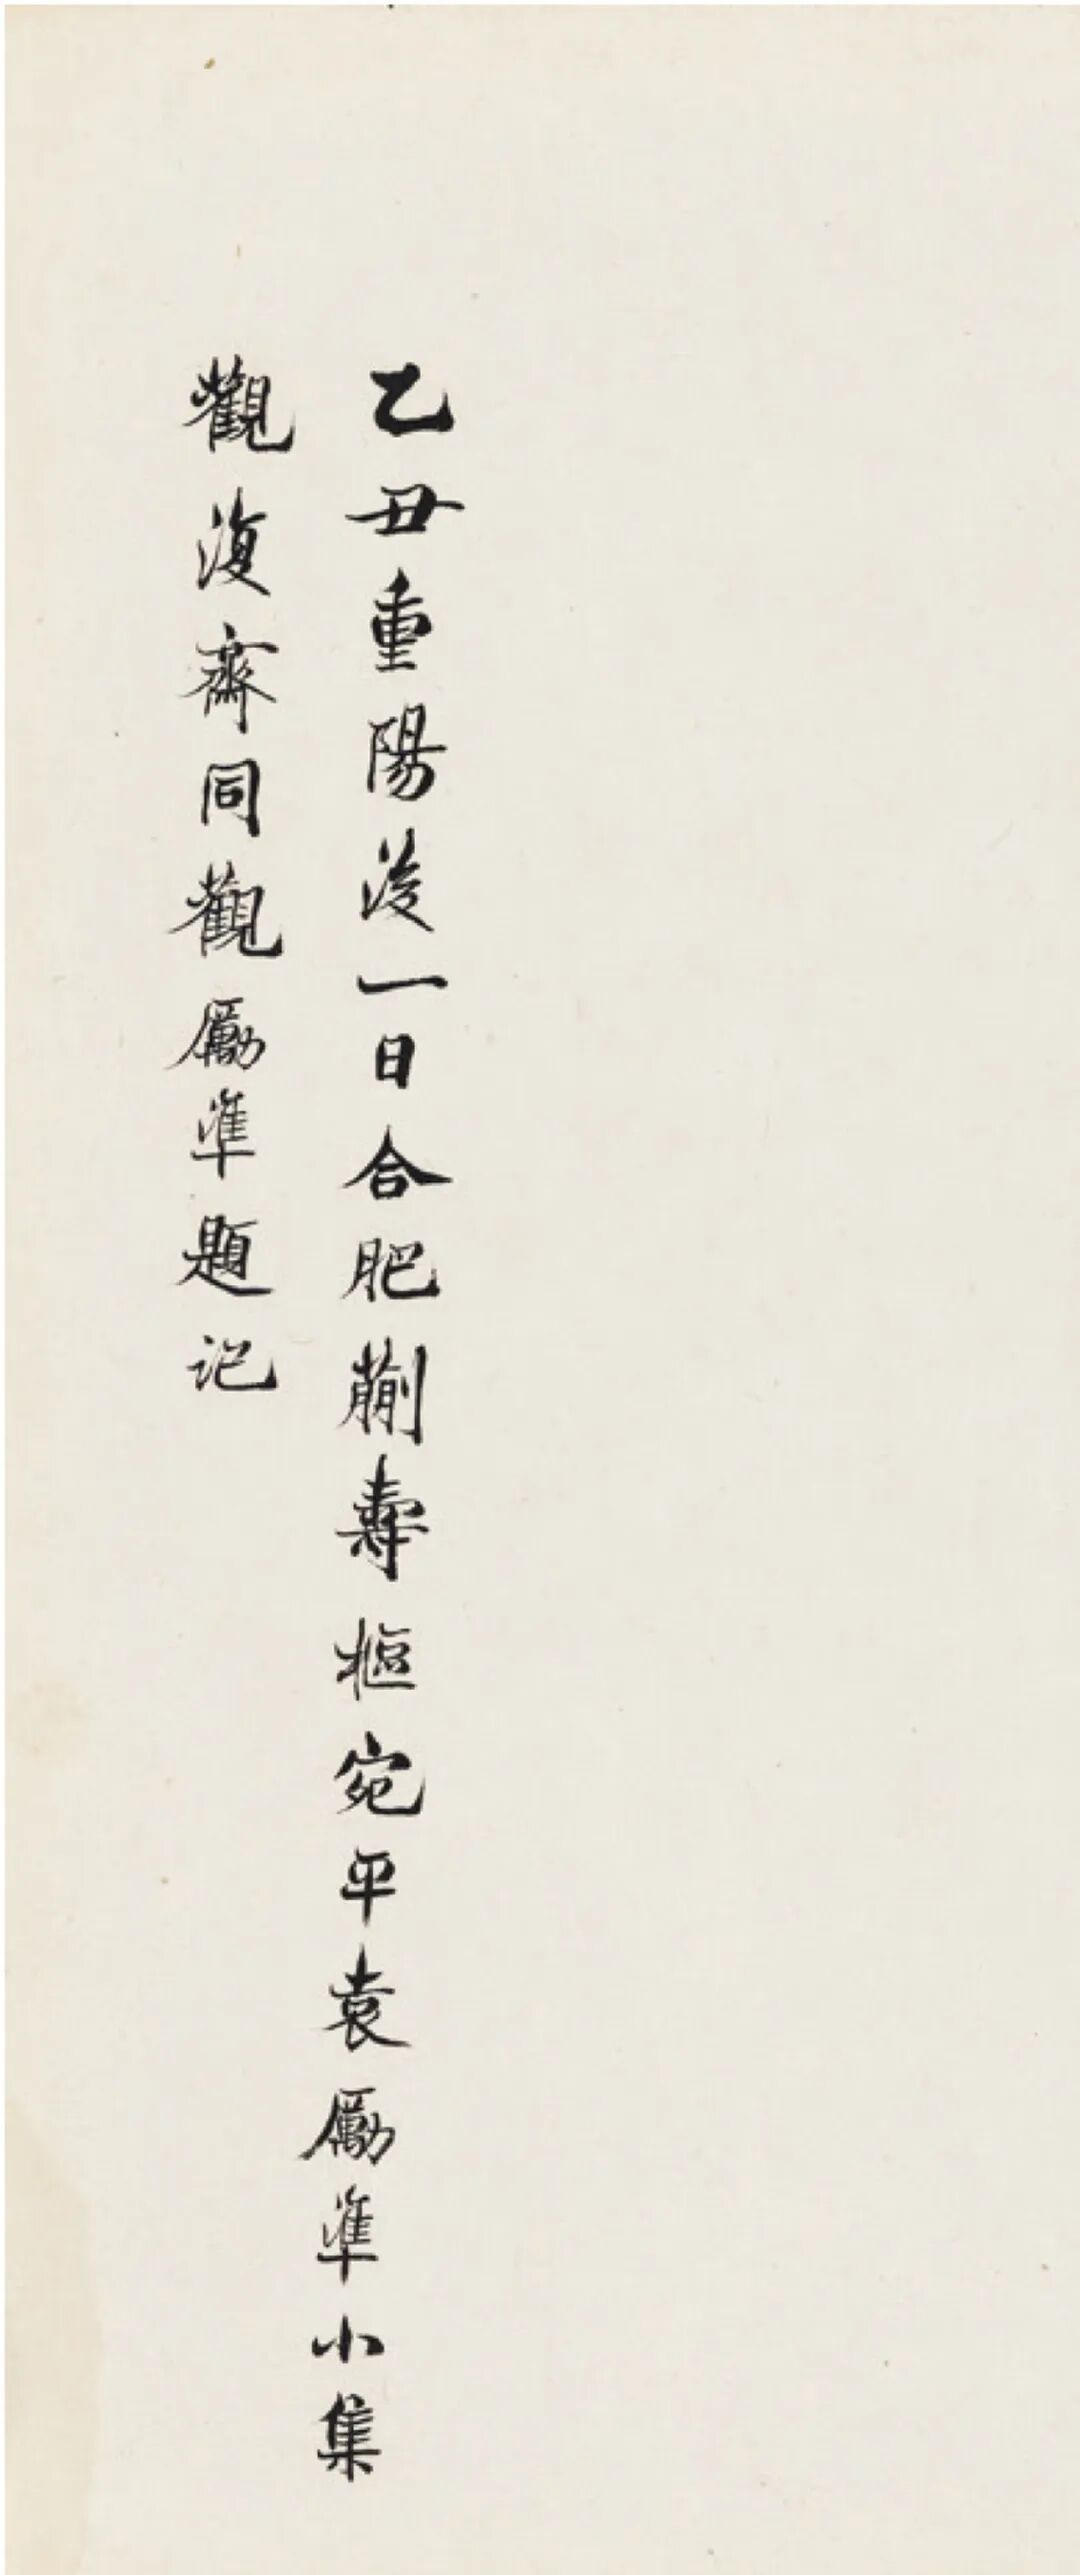 乙丑重陽後一日合肥蒯壽樞宛平袁勵準小集
觀復齋同觀勵準題記